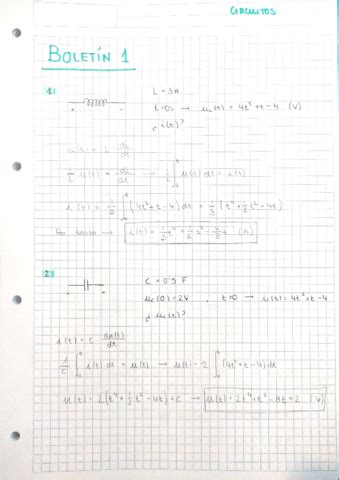 CIRCUITOS
BOLETÍN 1
1)
L = 3H
t=0s → u_L(t) = 4t³+t-4 (V)
¿ i(t)?
u(t) = L · di/dt
1/L u(t) = di/dt → 1/L ∫₀ᵗ u(t) dt = i(t)
i(t) = 1/3 ∫₀ᵗ (4t³+t-4) dt = 1/3 (t⁴+½t²-4t)
Por tanto → i(t) = 1/3 t⁴ + 1/6 t² - 4/3 t (A)
2)
C = 0'5 F
u_c(0) = 2V , t>0 → i(t) = 4t³+t-4
¿ u_c(t)?
i(t) = C du(t)/dt
1/C ∫₀ᵗ i(t) dt = u(t) → u(t) = 2 ∫₀ᵗ (4t³+t-4) dt
u(t) = 2(t⁴+½t²-4t)+C → u(t) = 2t⁴+t²-8t+2 (V)